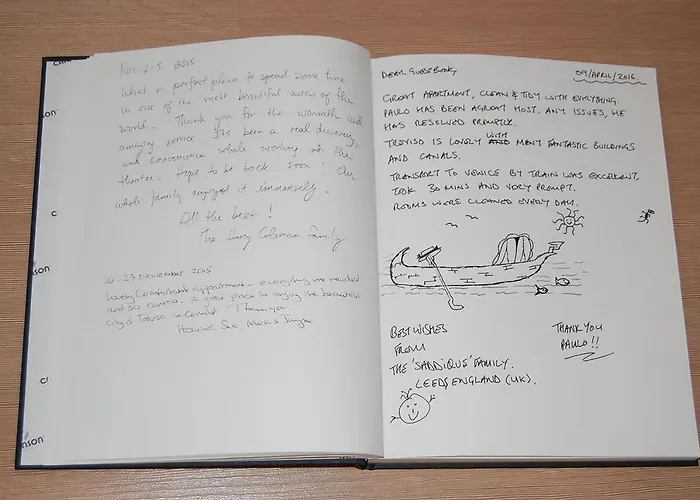 Nov 2-5 2015
What a perfect place to spend some time
in one of the most beautiful areas of the
world. Thank you for the warmth and
amazing service. It's been a real discovery,
and convenience while working at the
theater. Hope to be back soon! Our
whole family enjoyed it immensely.
All the best!
The Coleman Family
20-23 November 2015
Lovely Comfortable appartment - everything we needed
and so central, a great place to enjoy the beautiful
city of Treviso in Comfort. Thankyou
DEAR GUEST BOOK,
09/APRIL/2016.
GREAT APARTMENT, CLEAN & TIDY WITH EVERYTHING.
PAULO HAS BEEN A GREAT HOST. ANY ISSUES, HE
HAS RESOLVED PROMPTLY.
TREVISO IS LOVELY WITH MANY FANTASTIC BUILDINGS
AND CANALS.
TRANSPORT TO VENICE BY TRAIN WAS EXCELLENT.
TOOK 30 MINS AND VERY PROMPT.
ROOMS WERE CLEANED EVERY DAY.
BEST WISHES
FROM
THE 'SADDIQUE' FAMILY.
LEEDS ENGLAND (UK).
THANK YOU
PAULO!!